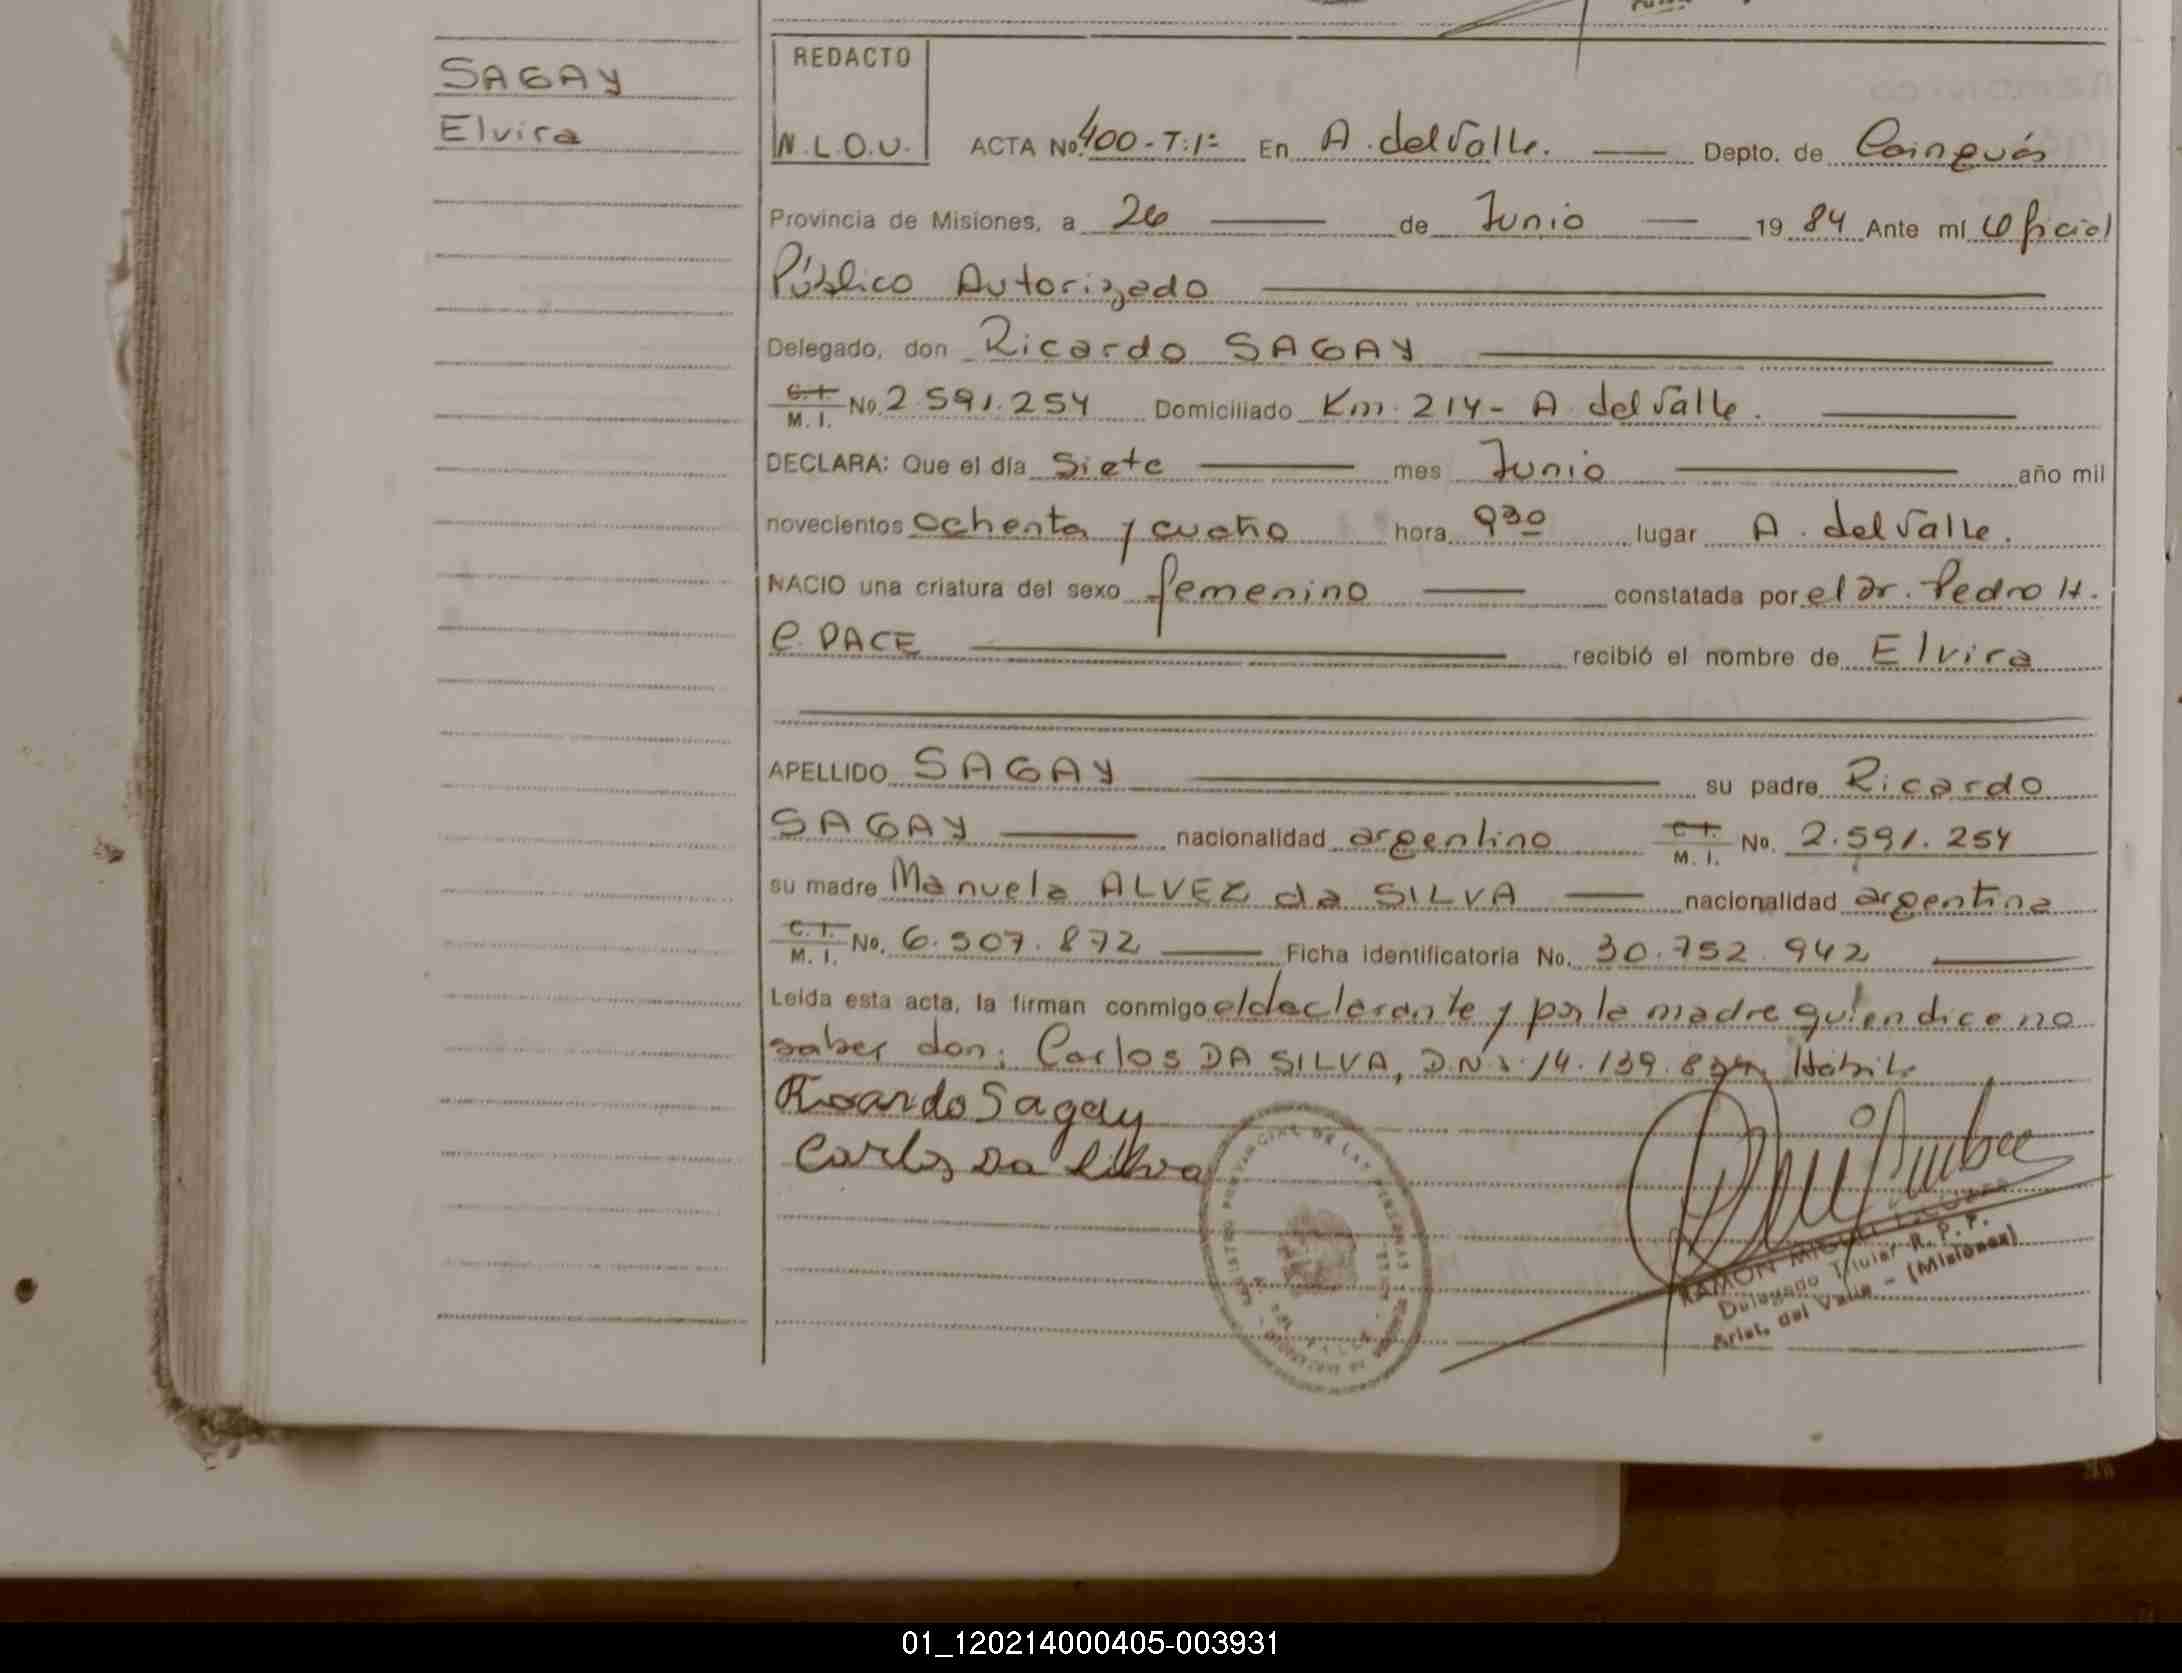 SAGAY
Elvira
REDACTO
N.L.O.V.
ACTA No. 400-T:1º En A. del Valle. Depto. de Cainguás
Provincia de Misiones, a 26 de Junio 1984 Ante mí Oficial
Público Autorizado
Delegado, don Ricardo SAGAY
C.I. M.I. No. 2.591.254 Domiciliado Km. 214 - A. del Valle.
DECLARA: Que el día Siete mes Junio año mil
novecientos ochenta y cuatro hora 930 lugar A. del Valle.
NACIO una criatura del sexo femenino constatada por el Dr. Pedro H.
C. PACE recibió el nombre de Elvira
APELLIDO SAGAY su padre Ricardo
SAGAY nacionalidad argentino C.I. M.I. No. 2.591.254
su madre Manuela ALVEZ da SILVA nacionalidad argentina
C.I. M.I. No. 6.507.872 Ficha identificatoria No. 30.752.942
Leida esta acta, la firman conmigo el declarante y por la madre quien dice no
saber don: Carlos DA SILVA, D.N.I. 14.139. Hábil.
Ricardo Sagay
Carlos Da Silva
RAMON MIGUEL
Delegado Titular R. P. P.
Arist. del Valle - (Misiones)
01_120214000405-003931